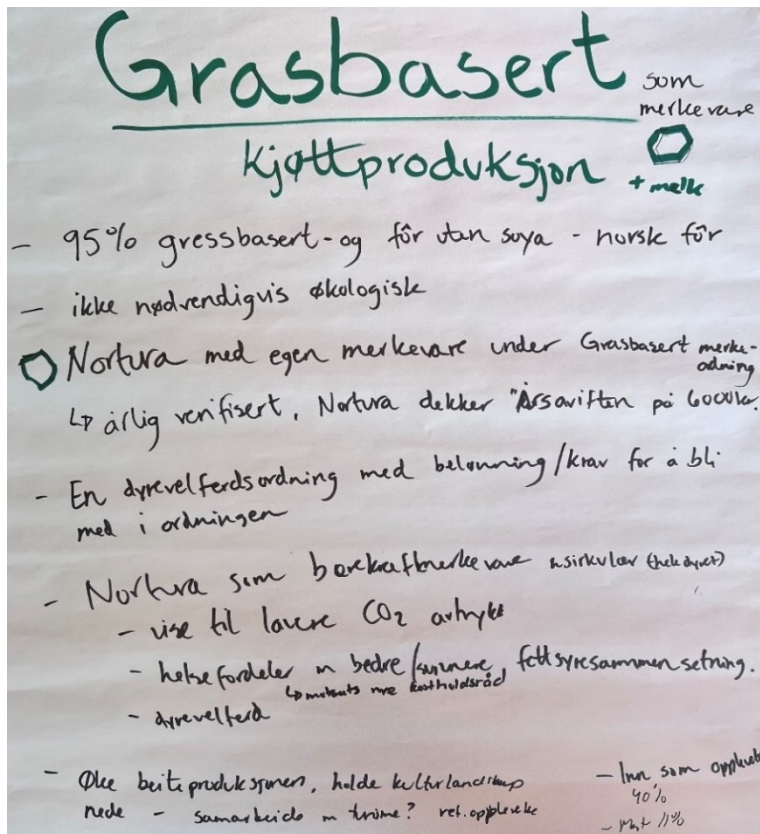 Grasbasert
som
merkevare
kjøttproduksjon
+ melk
- 95% gressbasert - og fôr utan soya - norsk fôr
- ikke nødvendigvis økologisk
Nortura med egen merkevare under Grasbasert merke-
odning
↳ årlig verifisert, Nortura dekker "Årsaviften på 6000kr.
- En dyrevelferdsordning med belønning/krav for å bli
med i ordningen
- Nortura som bærekraftmerkevare sirkulær (hele dyret)
- vise til lavere CO2 avtrykk
- helsefordeler m bedre/sunnere fettsyresammensetning.
↳ nye kostholdsråd
- dyrevelferd
- Øke beiteproduksjonen, holde kulturlandskap
nede - samarbeide m turisme? ref. oppleveke
- Inn som
40%
- 11%